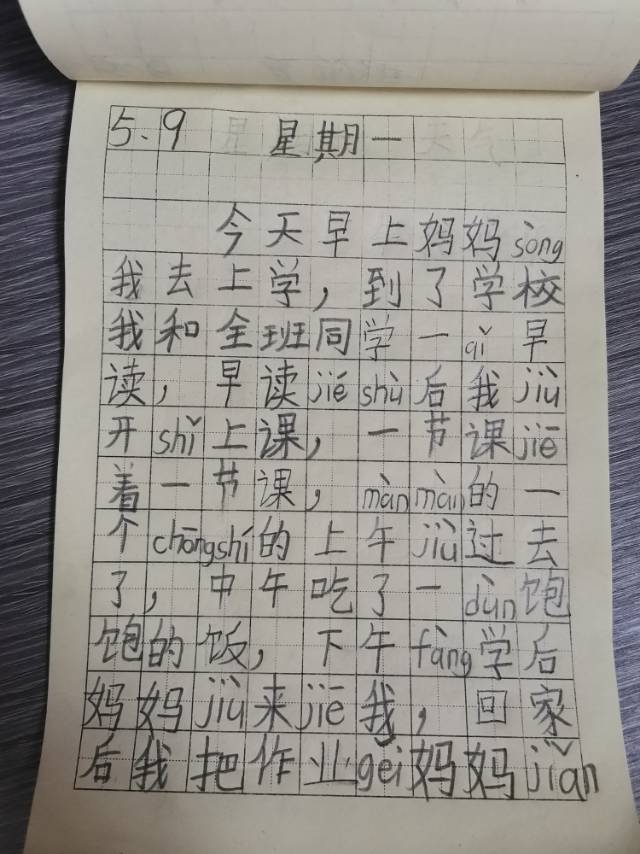 5.9 星期一
今天早上妈妈sòng
我去上学，到了学校
我和全班同学一qǐ早
读，早读jié shù后我jiù
开shǐ上课，一节课jiē
着一节课，màn màn的一
个chōngshí的上午jiù过去
了，中午吃了一dùn饱
饱的饭，下午fàng学后
妈妈jiù来jiē我，回家
后我把作业gěi妈妈jiǎn